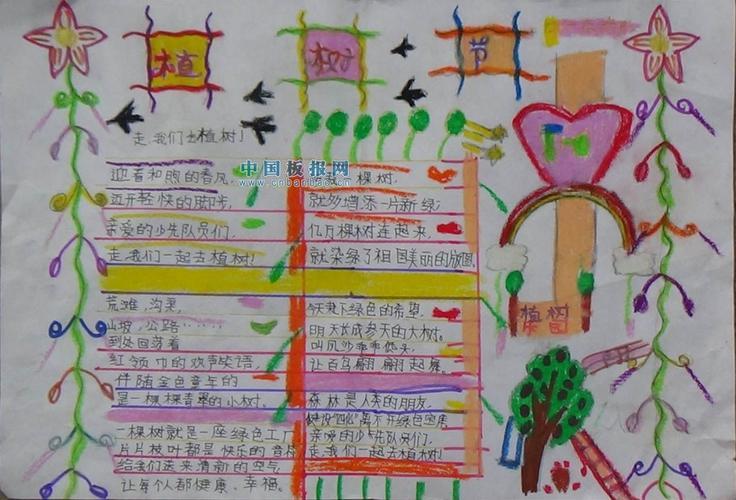 植 树 节
走,我们去植树!
迎着和煦的春风,
迈开轻快的脚步,
亲爱的少先队员们,
走,我们一起去植树!
荒滩,沟渠,
山坡,公路……
到处回荡着
红领巾的欢声笑语,
伴随金色童年的
是一棵棵青翠的小树,
一棵树就是一座绿色工厂
片片枝叶都是快乐的音符
给我们送来清新的空气
让每个人都健康、幸福。
棵树,
就多增添一片新绿;
亿万棵树连起来,
就染绿了祖国美丽的版图,
今天栽下绿色的希望,
明天长成参天的大树。
叫风沙乖乖低头,
让百鸟翩翩起舞。
森林是人类的朋友,
建设“四化”离不开绿色宝库
亲爱的少先队员们,
走,我们去植树!
中国板报网
www.cnbanbao.cn